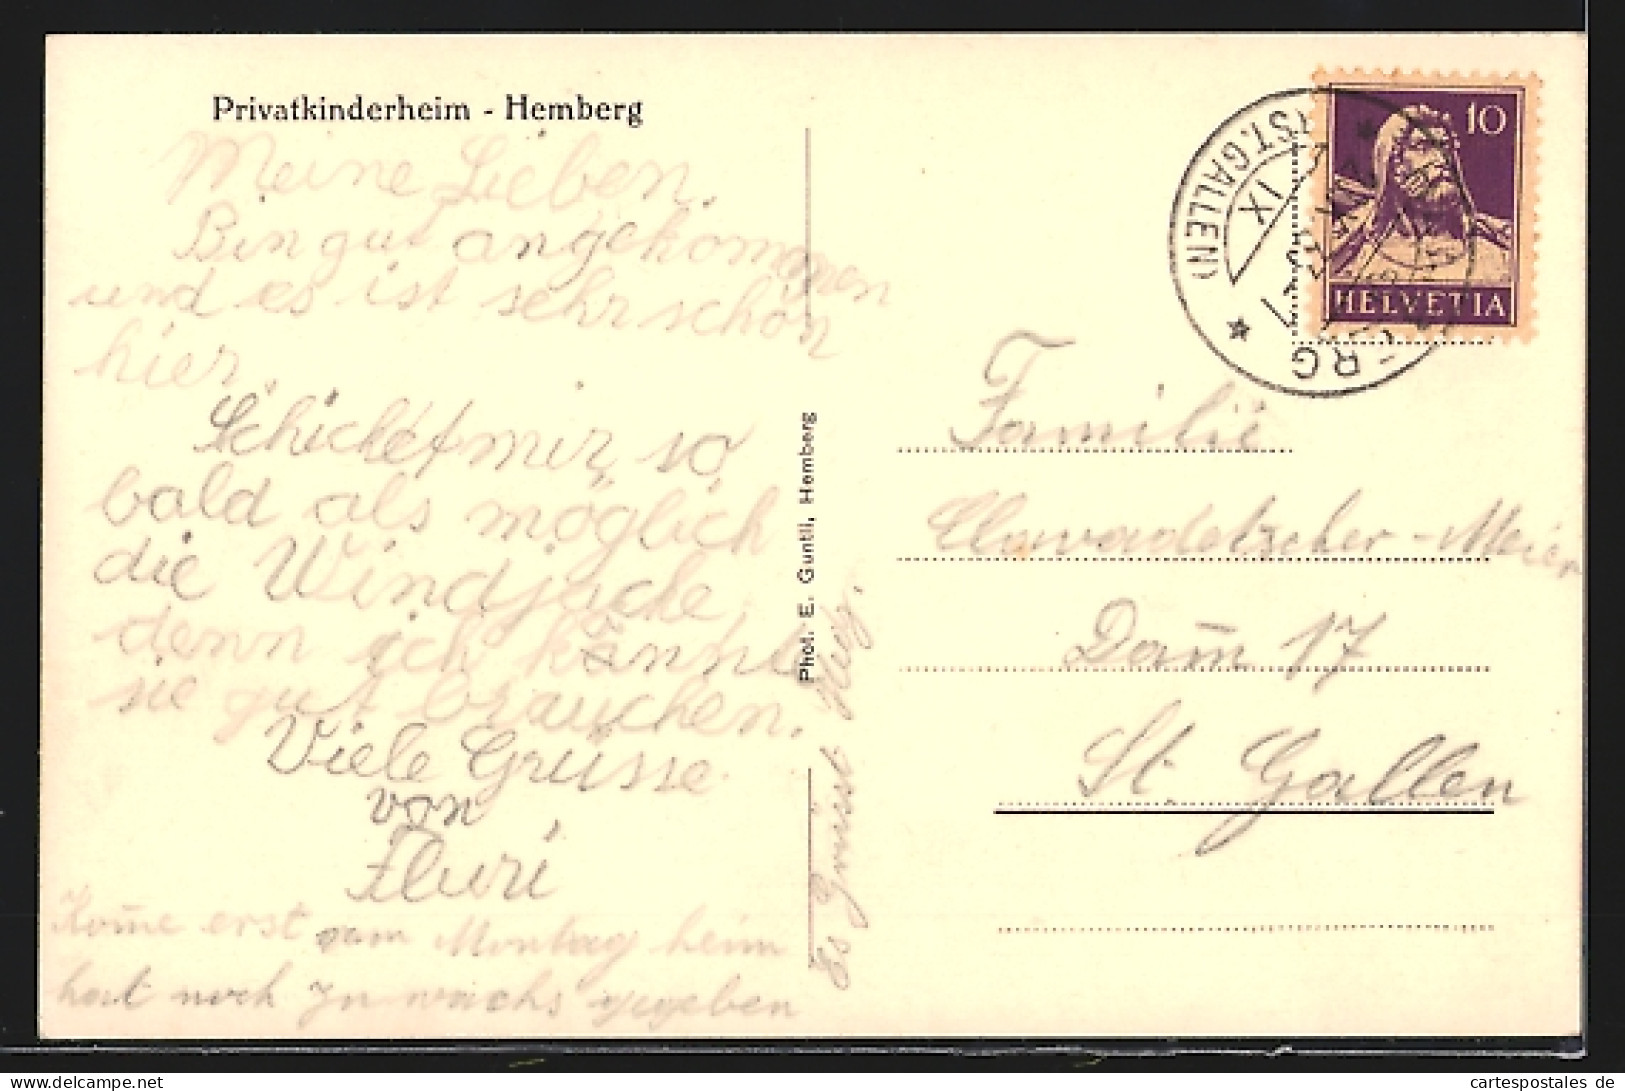 Privatkinderheim - Hemberg
Meine Lieben.
Bin gut angekommen
und es ist sehr schön
hier
Schicket mir so
bald als möglich
die Windjacke
denn ich könnte
sie gut brauchen.
Viele Grüsse
von
Fluri
Kom̅e erst am Montag heim
hat noch Zuwachs gegeben
Es Grüsst
Phot. E. Guntli, Hemberg
10
HELVETIA
(ST. GALLEN)
IX
Familie
-Meier
Dam̅ 17
St. Gallen
www.cartespostales.de